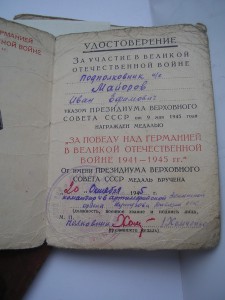 УДОСТОВЕРЕНИЕ
ЗА УЧАСТИЕ В ВЕЛИКОЙ
ОТЕЧЕСТВЕННОЙ ВОЙНЕ
Подполковник
Майоров
Иван Ефимович
УКАЗОМ ПРЕЗИДИУМА ВЕРХОВНОГО
СОВЕТА СССР от 9 мая 1945 года
НАГРАЖДЕН МЕДАЛЬЮ
„ЗА ПОБЕДУ НАД ГЕРМАНИЕЙ
В ВЕЛИКОЙ ОТЕЧЕСТВЕННОЙ
ВОЙНЕ 1941—1945 гг."
От имени ПРЕЗИДИУМА ВЕРХОВНОГО
СОВЕТА СССР МЕДАЛЬ ВРУЧЕНА
20 Октября 1945 г.
артиллерийской
ордена
М. П.
Полковник
ГЕРМАНИЕЙ
ВОЙНЕ